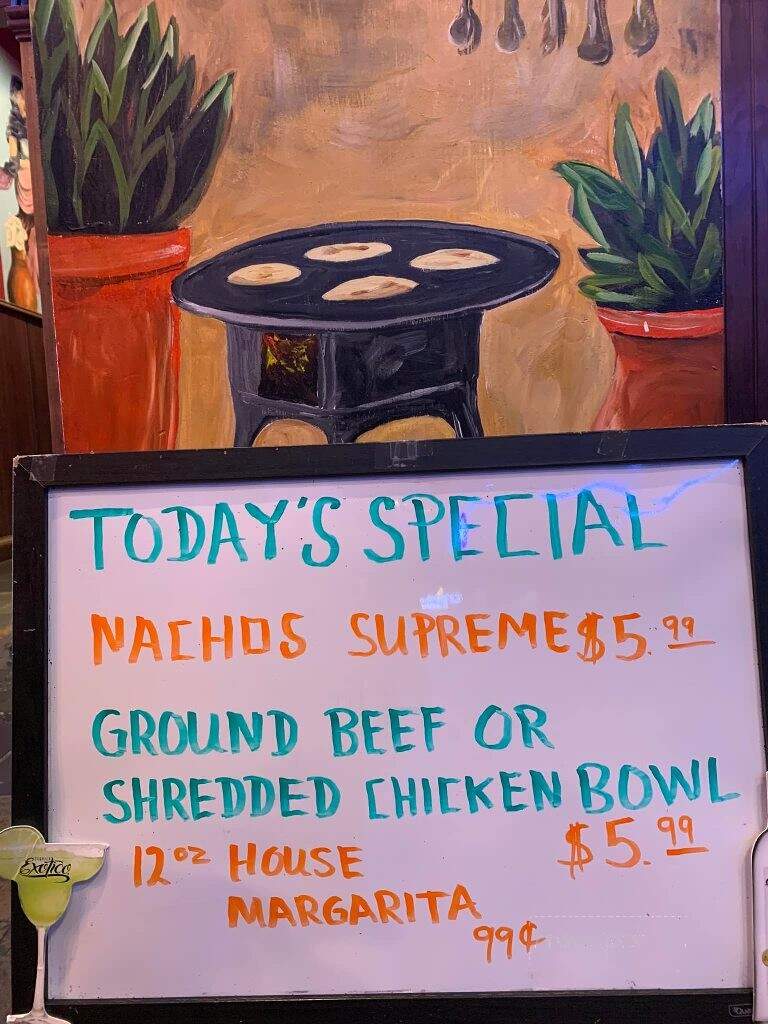 TODAY'S SPECIAL
NACHOS SUPREME $5.99
GROUND BEEF OR
SHREDDED CHICKEN BOWL
$5.99
12oz HOUSE
MARGARITA
99¢
Exotico